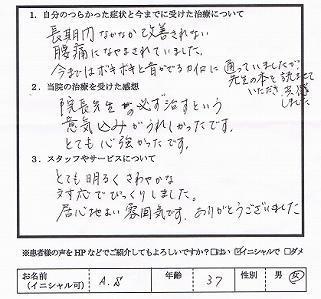 1. 自分のつらかった症状と今までに受けた治療について
長期間なかなか改善されない
腰痛になやまされていました。
今まではボキボキと音がでるカイロに通っていましたが、
先生の本を読ませて
いただき、実感
しました。
2. 当院の治療を受けた感想
院長先生の必ず治すという
意気込みがうれしかったです。
とても心強かったです。
3. スタッフやサービスについて
とても明るくさわやかな
対応でびっくりしました。
居心地よい雰囲気です。ありがとうございました
※患者様の声をHPなどでご紹介してもよろしいですか？□はい ☑イニシャルで □ダメ
お名前
(イニシャル可) A.S 年齢 37 性別 男 女